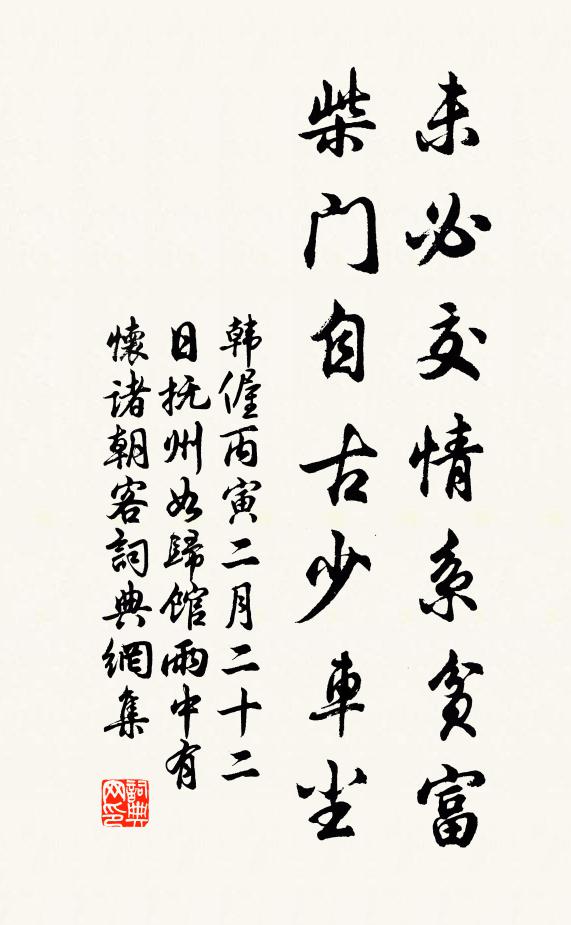 未必交情系貧富
柴門自古少車尘
韩偓丙寅二月二十二
日抚州如歸館雨中有
懷诸朝客詞典網集
詞典网印